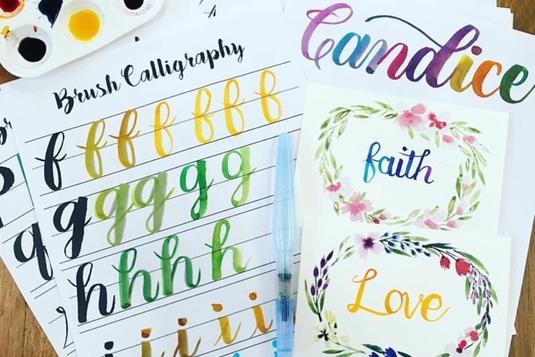 Brush Calligraphy
f f f f f f f
g g g g g g
h h h h h
i i i i i
Candice
faith
Love